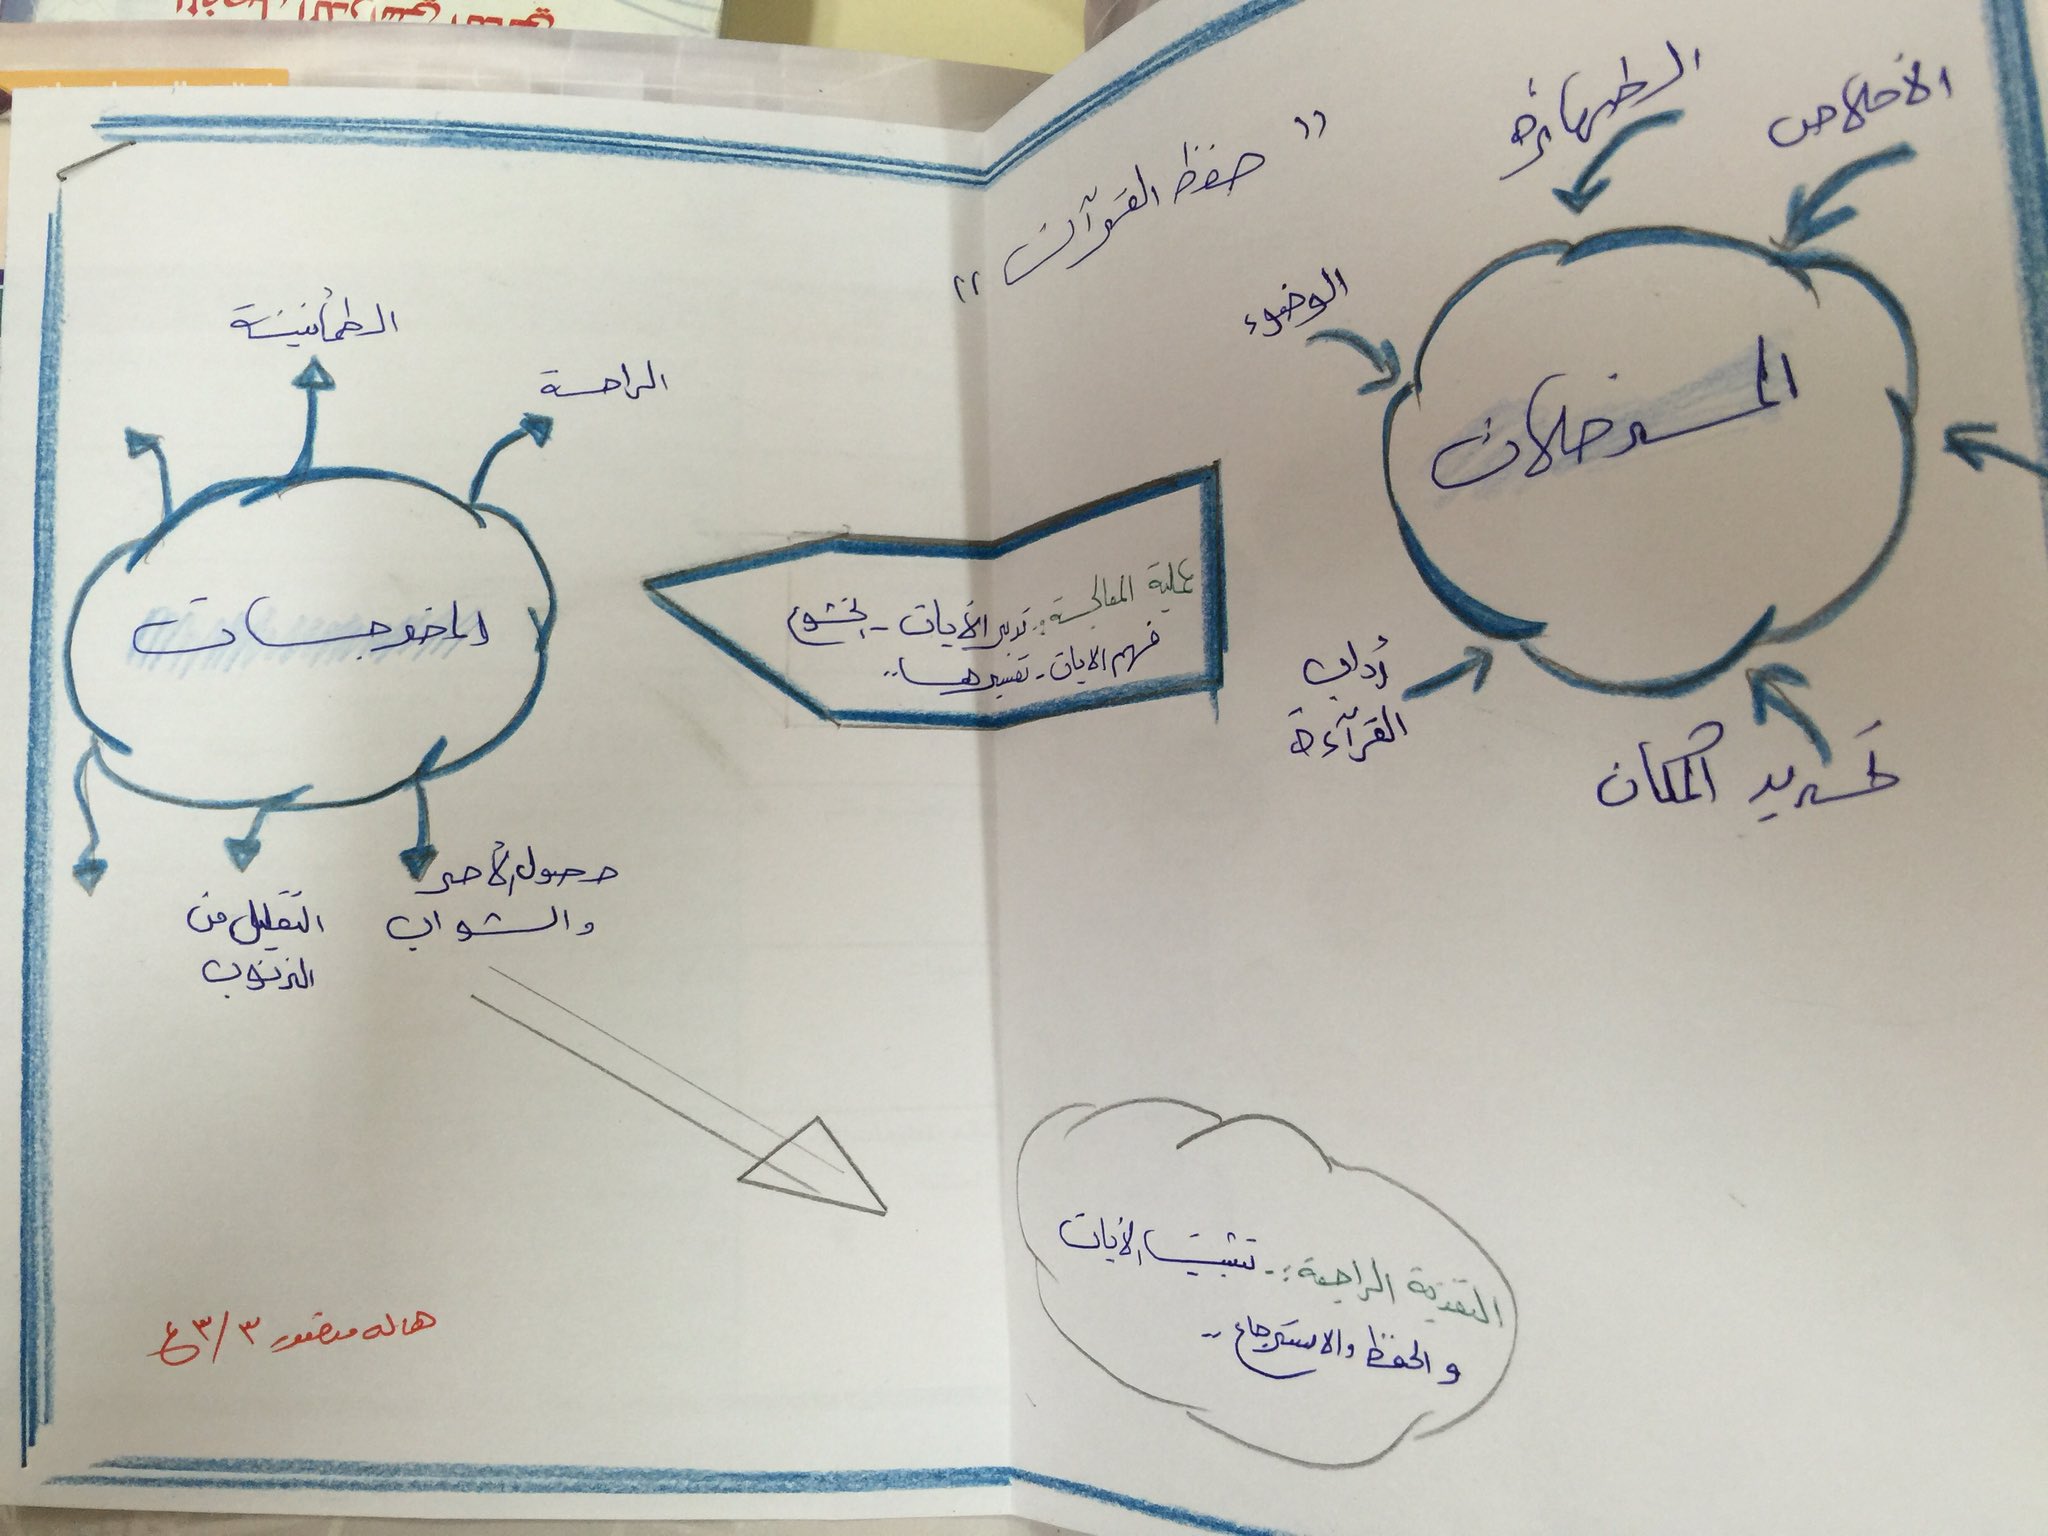 " حفظ القرآن "
الاخلاص
الطهارة
الوضوء
المدخلات
أداب
القرآءة
تحديد المكان
عملية المعالجة :- تدبر الأيات - الخشوع
فهم الايات - تفسيرها ..
الراحة
الطمأنينة
المخرجات
حصول الأجر
والثواب
التقليل من
الذنوب
التغذية الراجعة :- تثبيت الأيات
والحفظ والاسترجاع ..
هاله منصور ٣/٣ع